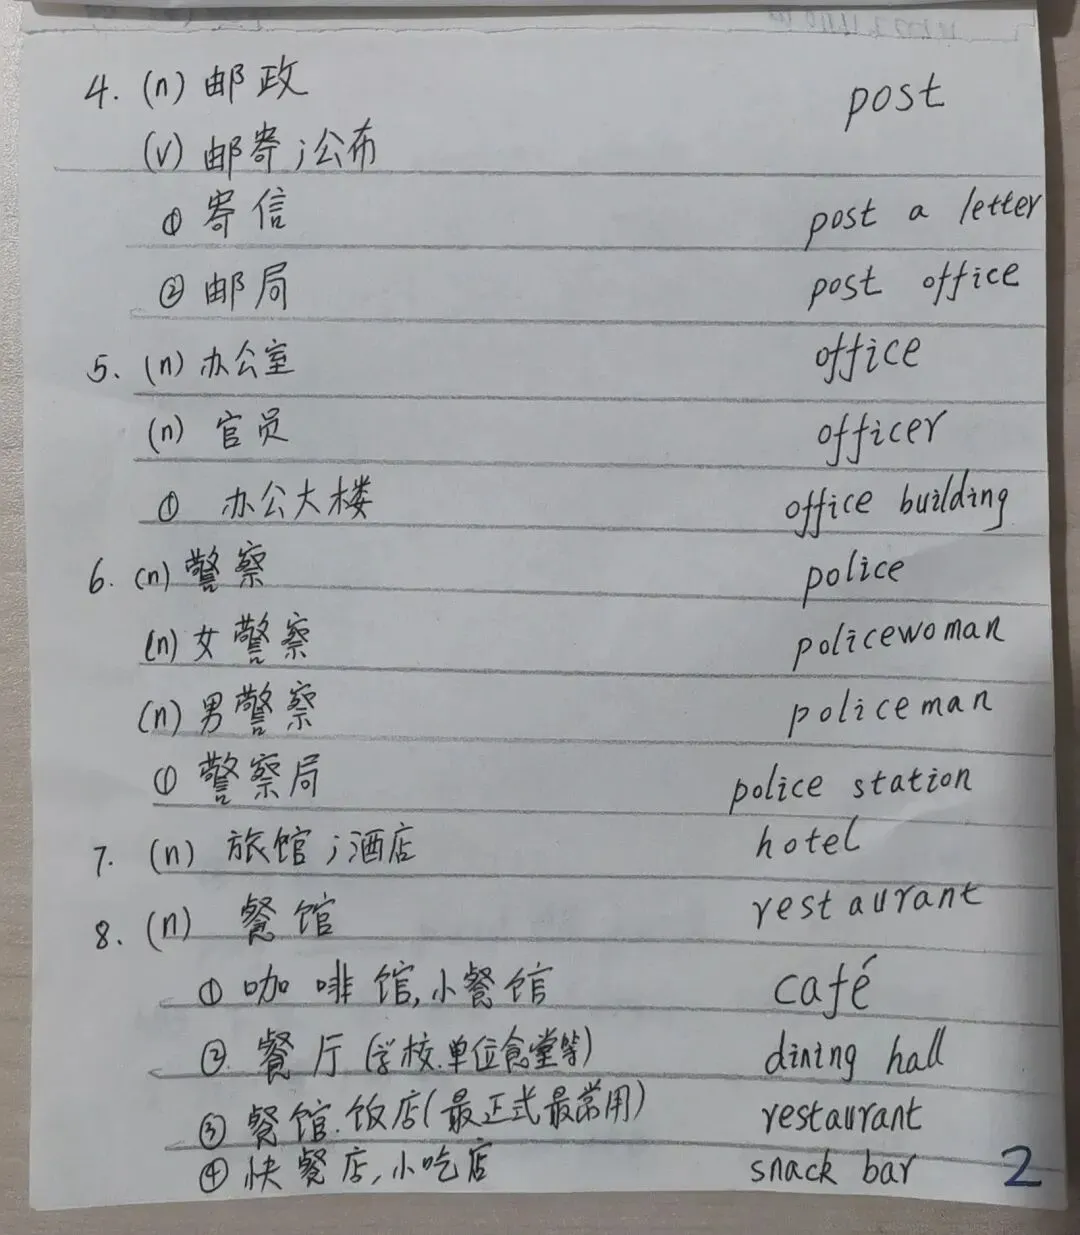 4. (n) 邮政 post
(v) 邮寄;公布
① 寄信 post a letter
② 邮局 post office
5. (n) 办公室 office
(n) 官员 officer
① 办公大楼 office building
6. (n) 警察 police
(n) 女警察 policewoman
(n) 男警察 policeman
① 警察局 police station
7. (n) 旅馆;酒店 hotel
8. (n) 餐馆 restaurant
① 咖啡馆,小餐馆 café
② 餐厅(学校.单位食堂等) dining hall
③ 餐馆.饭店(最正式最常用) restaurant
④ 快餐店,小吃店 snack bar
2